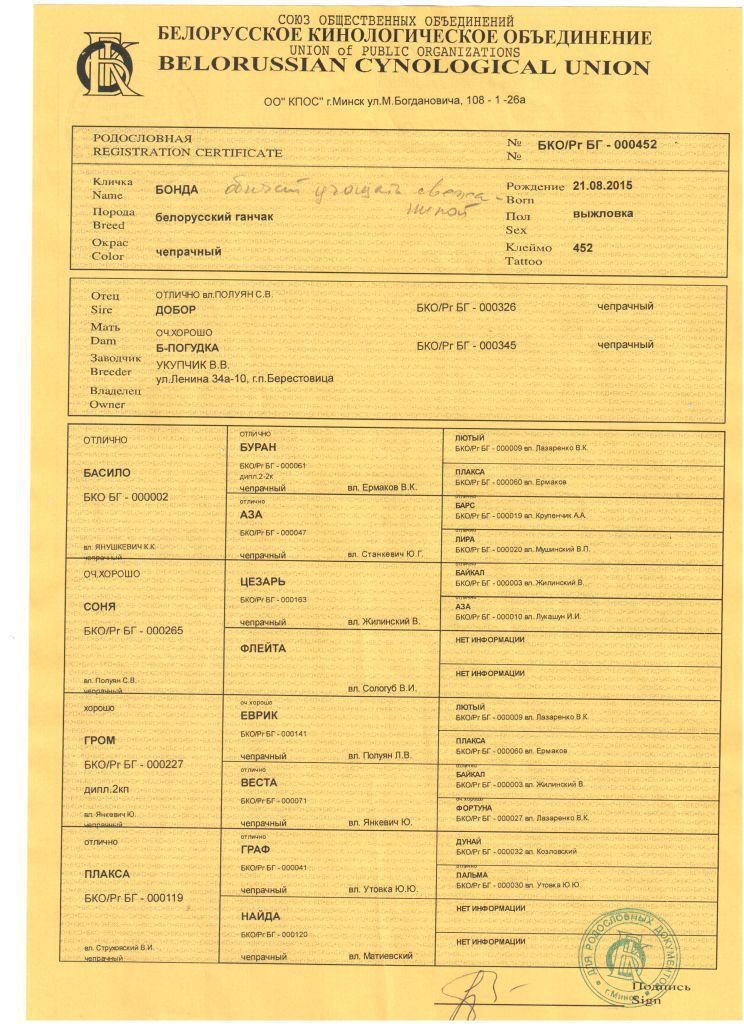 СОЮЗ ОБЩЕСТВЕННЫХ ОБЪЕДИНЕНИЙ
БЕЛОРУССКОЕ КИНОЛОГИЧЕСКОЕ ОБЪЕДИНЕНИЕ
UNION of PUBLIC ORGANIZATIONS
BELORUSSIAN CYNOLOGICAL UNION
ОО" КПОС" г.Минск ул.М.Богдановича, 108 - 1 -26а
РОДОСЛОВНАЯ
REGISTRATION CERTIFICATE
№ БКО/Рг БГ - 000452
№
Кличка
Name БОНДА
Порода
Breed белорусский ганчак
Окрас
Color чепрачный
Рождение 21.08.2015
Born
Пол выжловка
Sex
Клеймо 452
Tattoo
Отец ОТЛИЧНО вл.ПОЛУЯН С.В.
Sire ДОБОР БКО/Рг БГ - 000326 чепрачный
Мать ОЧ.ХОРОШО
Dam Б-ПОГУДКА БКО/Рг БГ - 000345 чепрачный
Заводчик УКУПЧИК В.В.
Breeder ул.Ленина 34а-10, г.п.Берестовица
Владелец
Owner
ОТЛИЧНО
БАСИЛО
БКО БГ - 000002
вл. ЯНУШКЕВИЧ К.К
чепрачный
ОЧ.ХОРОШО
СОНЯ
БКО/Рг БГ - 000265
вл. Полуян С.В.
чепрачный
хорошо
ГРОМ
БКО/Рг БГ - 000227
дипл.2кп
вл. Янкевич Ю.
чепрачный
отлично
ПЛАКСА
БКО/Рг БГ - 000119
вл. Струковский В.И.
чепрачный
отлично
БУРАН
БКО/Рг БГ - 000061
дипл.2-2к
чепрачный вл. Ермаков В.К.
отлично
АЗА
БКО/Рг БГ - 000047
чепрачный вл. Станкевич Ю.Г.
ЦЕЗАРЬ
БКО/Рг БГ - 000163
чепрачный вл. Жилинский В.
ФЛЕЙТА
вл. Сологуб В.И.
оч.хорошо
ЕВРИК
БКО/Рг БГ - 000141
чепрачный вл. Полуян Л.В.
отлично
ВЕСТА
БКО/Рг БГ - 000071
чепрачный вл. Янкевич Ю.
отлично
ГРАФ
БКО/Рг БГ - 000041
чепрачный вл. Утовка Ю.Ю.
НАЙДА
БКО/Рг БГ - 000120
чепрачный вл. Матиевский
ЛЮТЫЙ
БКО/Рг БГ - 000009 вл. Лазаренко В.К.
ПЛАКСА
БКО/Рг БГ - 000060 вл. Ермаков
отлично
БАРС
БКО/Рг БГ - 000019 вл. Крупенчик А.А.
отлично
ЛИРА
БКО/Рг БГ - 000020 вл. Мушинский В.П.
БАЙКАЛ
БКО/Рг БГ - 000003 вл. Жилинский В.
АЗА
БКО/Рг БГ - 000010 вл. Лукашун И.И.
НЕТ ИНФОРМАЦИИ
НЕТ ИНФОРМАЦИИ
ЛЮТЫЙ
БКО/Рг БГ - 000009 вл. Лазаренко В.К.
ПЛАКСА
БКО/Рг БГ - 000060 вл. Ермаков
отлично
БАЙКАЛ
БКО/Рг БГ - 000003 вл. Жилинский В.
оч.хорошо
ФОРТУНА
БКО/Рг БГ - 000027 вл. Лазаренко В.К.
ДУНАЙ
БКО/Рг БГ - 000032 вл. Козловский
отлично
ПАЛЬМА
БКО/Рг БГ - 000030 вл. Утовка Ю.Ю.
НЕТ ИНФОРМАЦИИ
НЕТ ИНФОРМАЦИИ
ДЛЯ РОДОСЛОВНЫХ ДОКУМЕНТОВ
г.Минск
Подпись
Sign